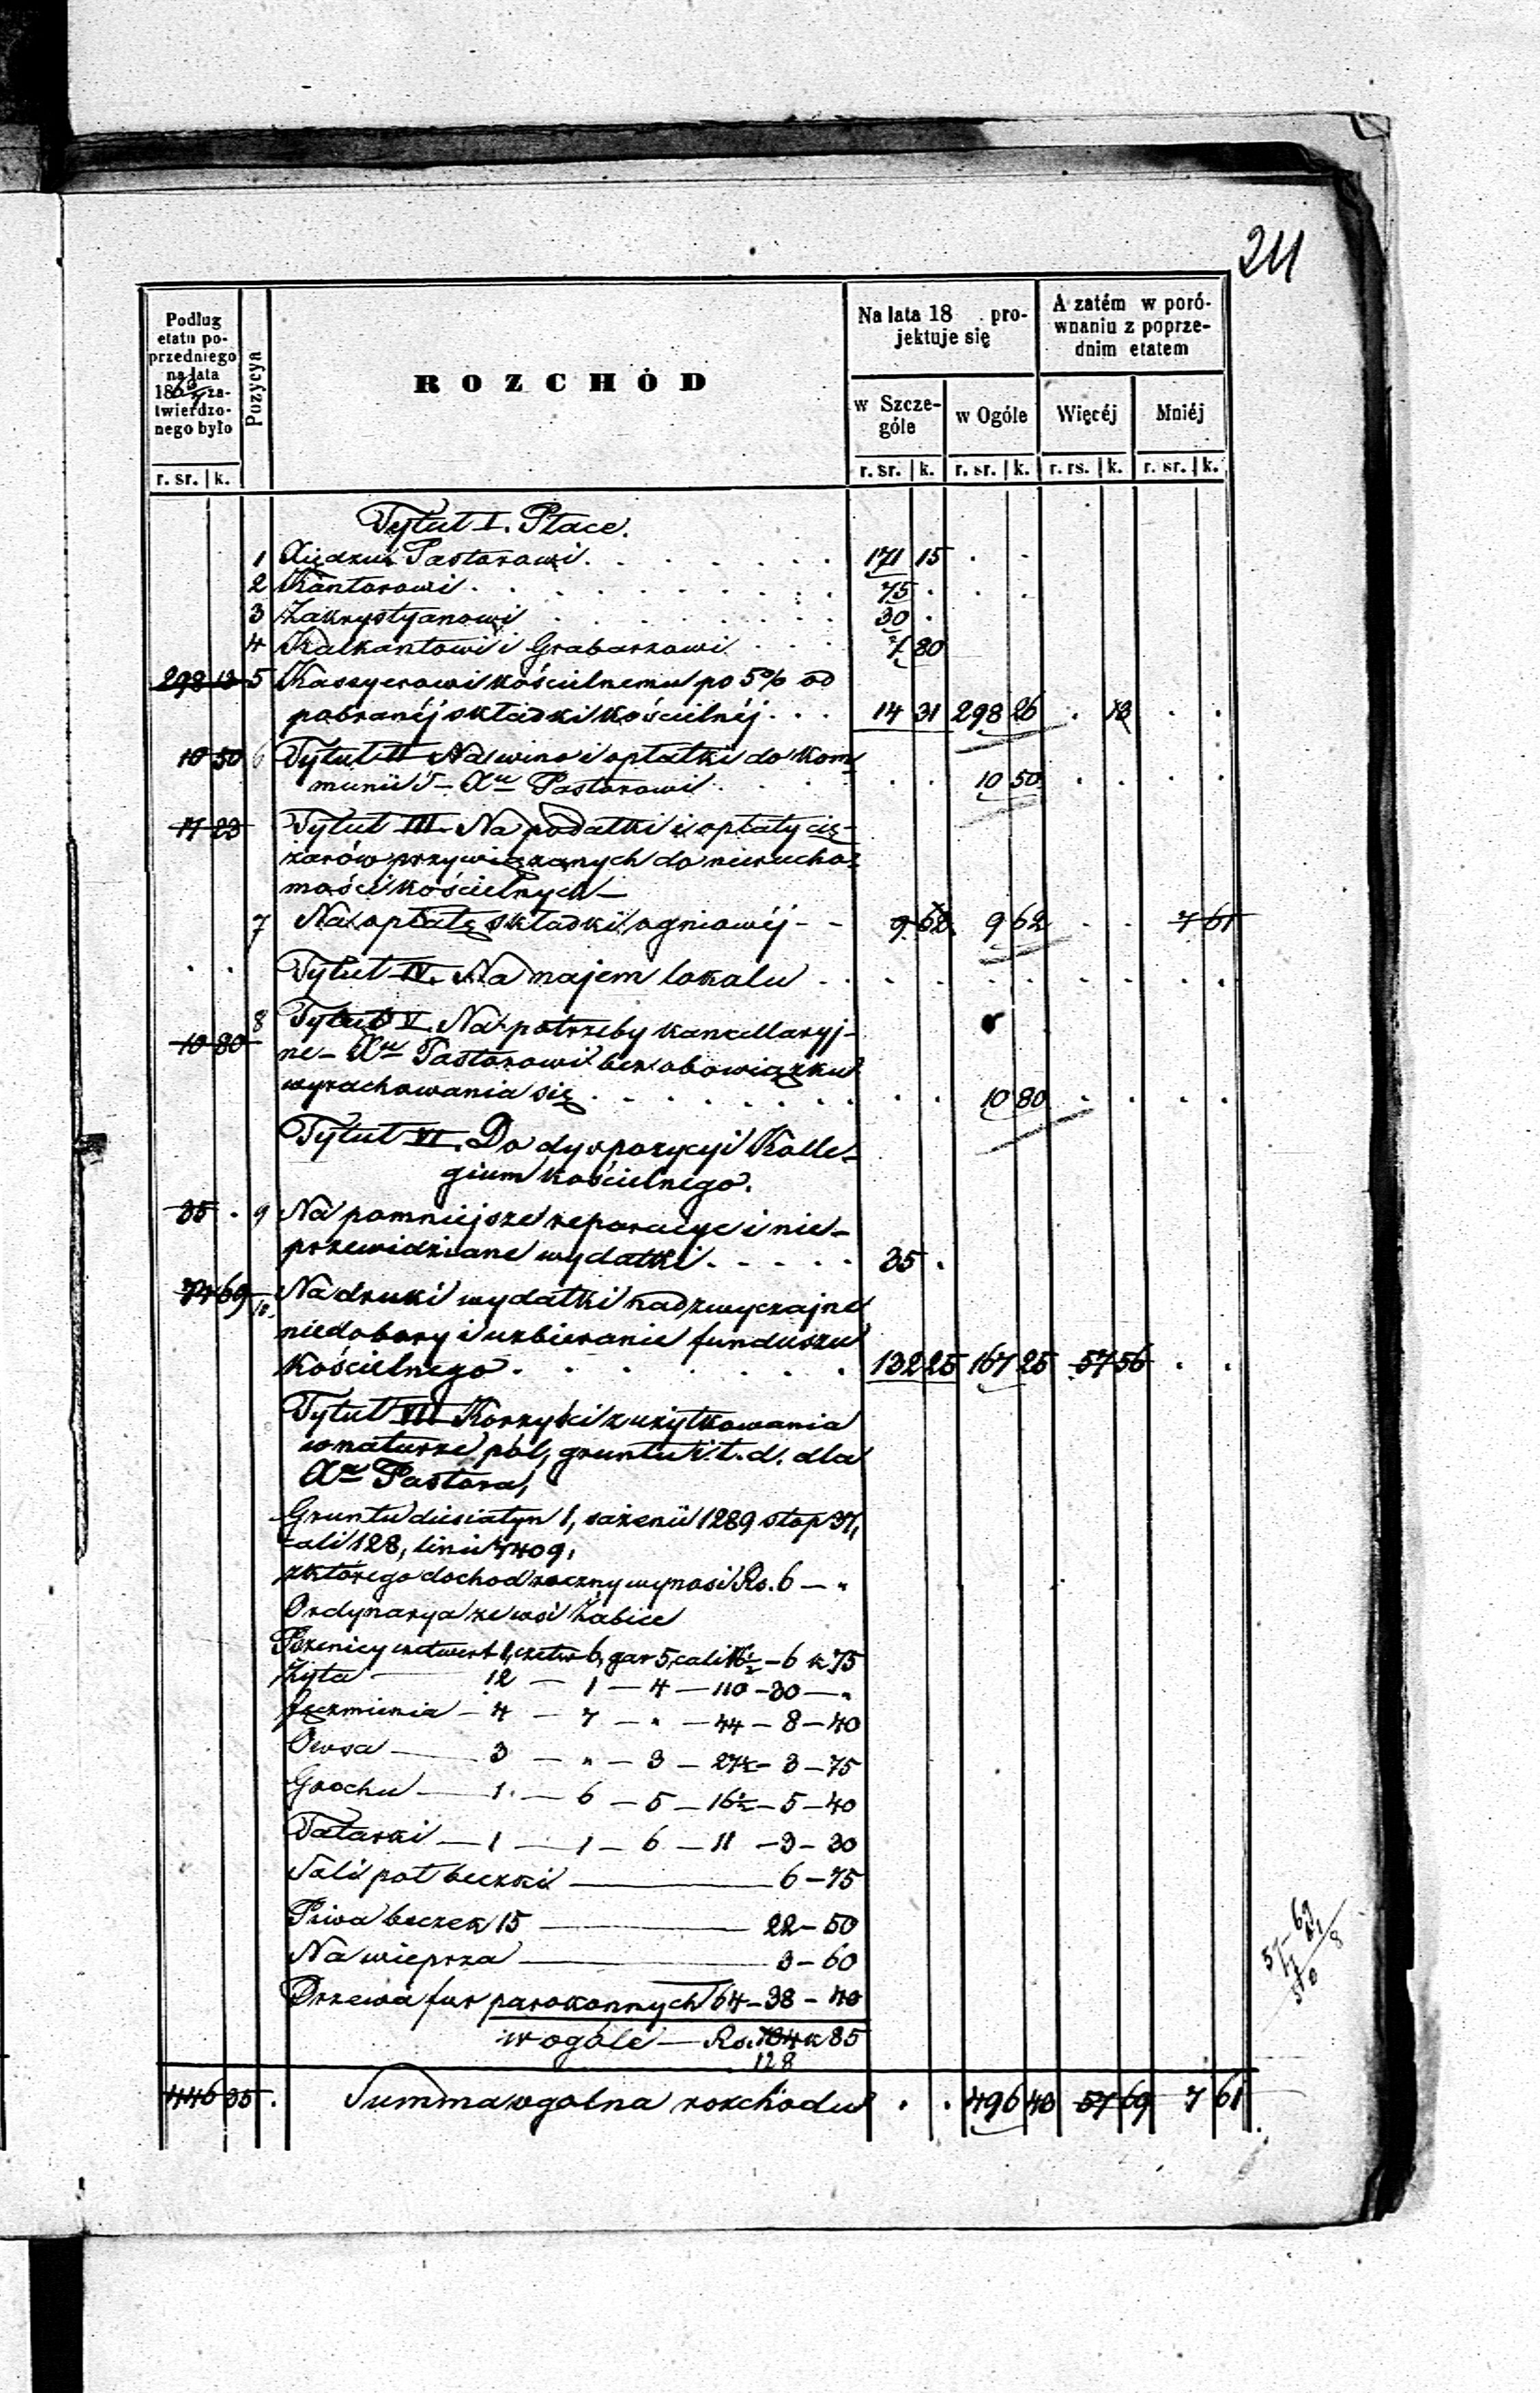 211
Podług etatu poprzedniego na lata 186 za-twierdzo-nego było
Pozycya
ROZCHÓD
Na lata 18 . pro-jektuje się
A zatém w poró-wnaniu z poprze-dnim etatem
w Szcze-góle
w Ogóle
Więcéj
Mniéj
r. sr. k. r. sr. k. r. sr. k. r. rs. k. r. sr. k.
Tytuł I. Płace.
1 Xiędzu Pastorowi . . . . . . . 171 15 . .
2 Kantorowi . . . . . . . . . 75 . . .
3 Zakrystyanowi . . . . . . . 30 .
4 Kalkantowi i Grabarzowi . . . 7 80
298 13 5 Kassyerowi kościelnemu po 5% od
pobranéj składki kościelnéj . . . 14 31 298 26 . 13 . .
10 50 6 Tytuł II Na wino i opłatki do kom-
munii Xu Pastorowi . . . . . 10 50 . . . .
17 23 Tytuł III Na podatki i opłaty cię-
żarów przywiązanych do nierucho-
mości kościelnych —
7 Na opłatę składki ogniowéj - - 9 62 9 62 . . 7 61
. . Tytuł IV. Na najem lokalu . . . . . . . . .
8 Tytuł V. Na potrzeby kancellaryj-
10 80 ne - Xu Pastorowi bez obowiązku
wyrachowania się . . . . . . . . . 10 80 . . . .
Tytuł VI. Do dyspozycyi Kolle-
gium kościelnego.
35 . 9 Na pomniejsze reparacye i nie-
przewidziane wydatki . . . . . 35 .
74 69 10. Na druki wydatki nadzwyczajne
niedobory i uzbieranie funduszu
kościelnego . . . . . . . 132 25 167 25 57 56 . .
Tytuł VII Korzyści z użytkowania
w naturze pól, gruntu i t. d. dla
Xa Pastora,
Gruntu diesiatyn 1, sażenii 1289 stop 37,
cali 128, linii 4409,
z którego dochod roczny wynosi Rs. 6 — "
Ordynarya ze wsi Żabice
Pszenicy czetwert 1, czetw 6, gar 5, cali 16½ - 6 k 75
Żyta — 12 — 1 — 4 — 110 - 30 — "
Jęczmienia - 4 - 7 - " - 44 - 8 - 40
Owsa — 3 — " — 3 - 27½ - 3 - 75
Grochu — 1 — 6 — 5 - 16½ - 5 - 40
Tatarki — 1 — 1 — 6 — 11 - 3 - 30
Soli pół beczki — 6 - 75
Piwa beczek 15 — 22 - 50
Na wieprza — 3 - 60
Drzewa fur parokonnych 64 - 38 - 40
w ogóle — Rs. 134 k 85
128
446 35 . Summa ogólna rozchodu . . 496 43 57 69 7 61